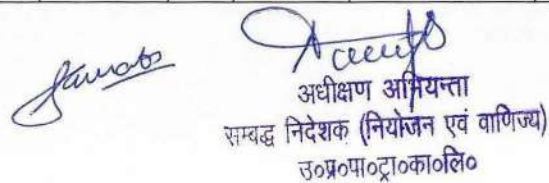 अधीक्षण अभियन्ता
सम्बद्ध निदेशक (नियोजन एवं वाणिज्य)
उ०प्र०पा०ट्रा०का०लि०